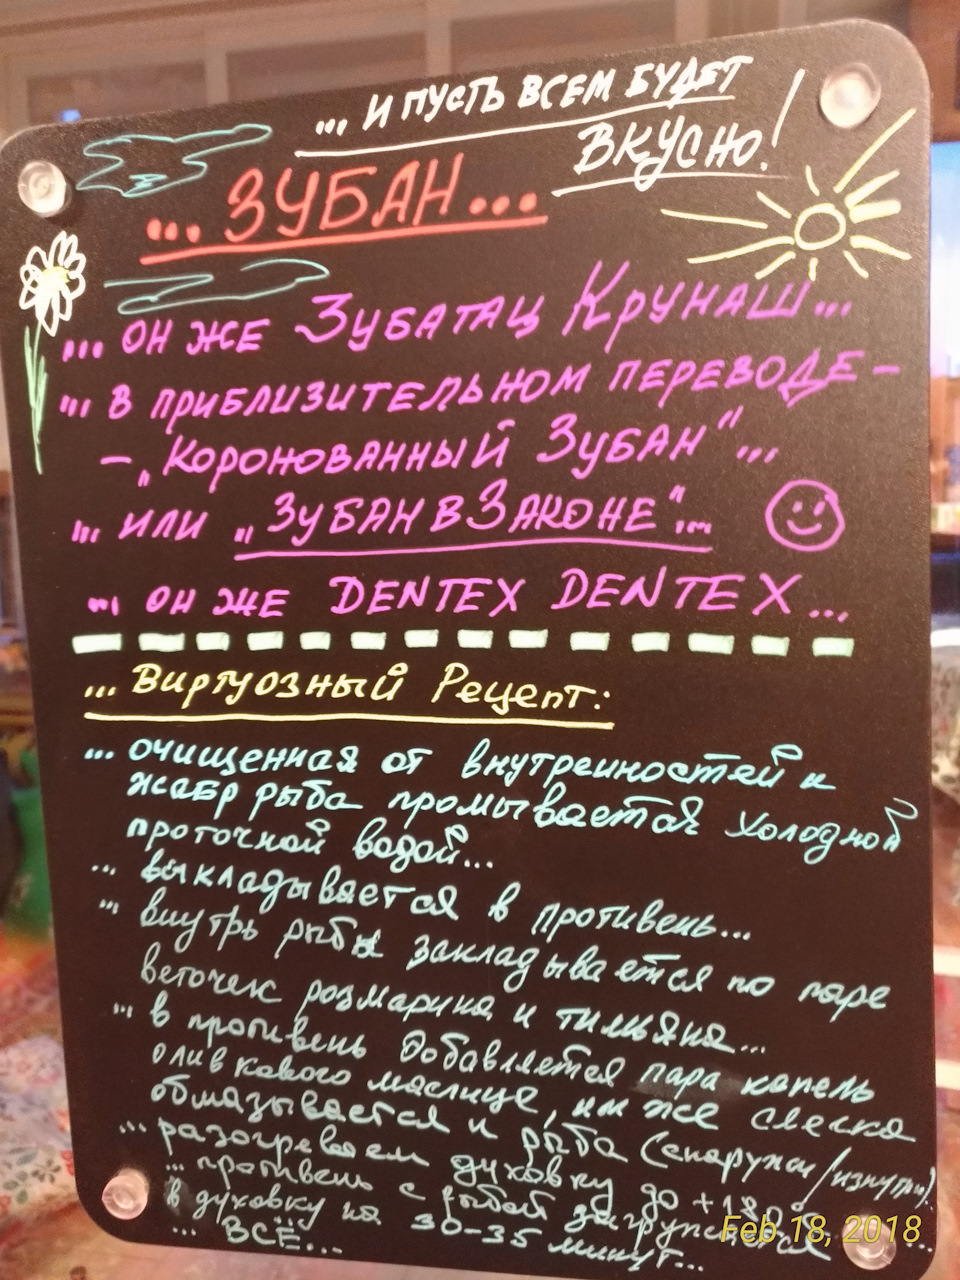 ... И ПУСТЬ ВСЕМ БУДЕТ
ВКУСНО!
... ЗУБАН...
... ОН ЖЕ ЗУБАТАЦ КРУНАШ...
... В ПРИБЛИЗИТЕЛЬНОМ ПЕРЕВОДЕ –
– „КОРОНОВАННЫЙ ЗУБАН“...
... ИЛИ „ЗУБАН В ЗАКОНЕ“...
... ОН ЖЕ DENTEX DENTEX...
... ВИРТУОЗНЫЙ РЕЦЕПТ:
... очищенная от внутренностей и
жабр рыба промывается холодной
проточной водой...
... выкладывается в противень...
... внутрь рыбы закладывается по паре
веточек розмарина и тимьяна...
... в противень добавляется пара капель
оливкового маслица, им же слегка
обмазывается и рыба (снаружи/изнутри).
... разогреваем духовку до +180°
... противень с рыбой загружается
в духовку на 30-35 минут...
... ВСЁ...
Feb 18, 2018